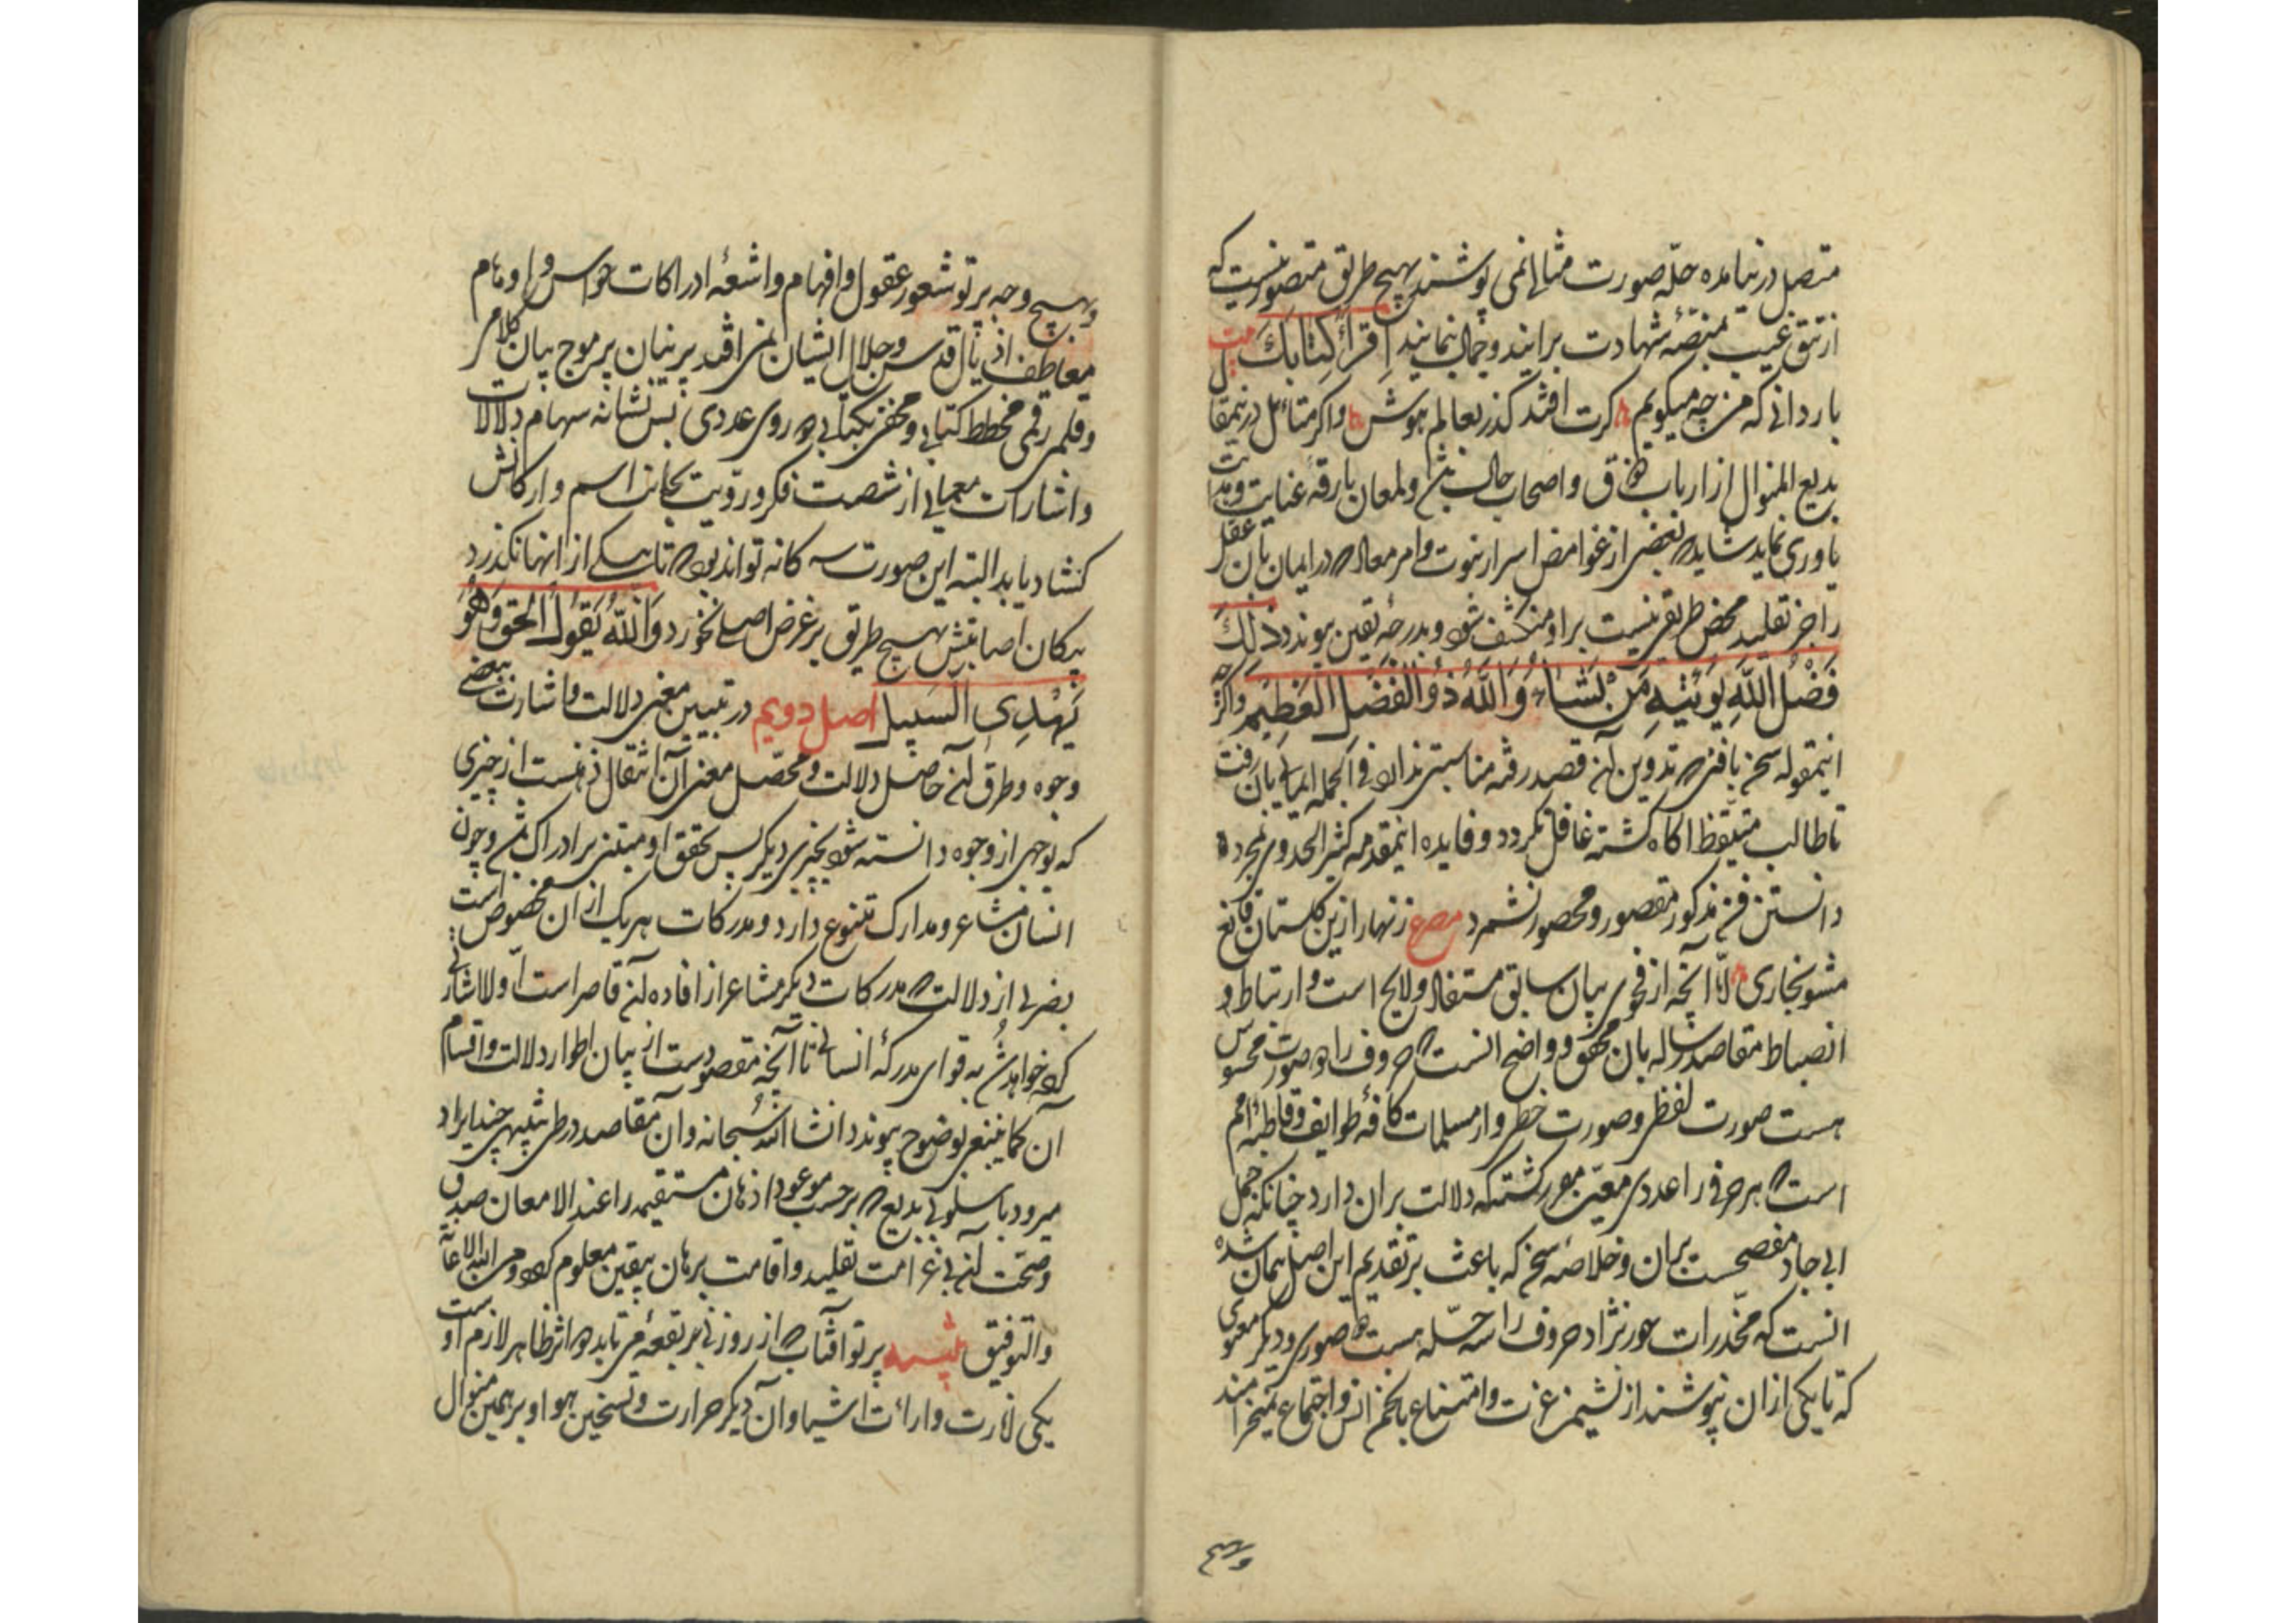 متصل درنیامده حلّه صورت مثالی نمی پوشند بهیچ طریق متصور نیست که
از تتق غیب بمنصّهٔ شهادت برآیند و جمال نمایند اِقرَأ کِتابَکَ بیت
بار دانی که من چه میکویم کرت افتد کذر بعالم هوش و اکر متأمل درنمقا
بدیع المنوال از ارباب ذوق و اصحاب حال باشد و لمعان بارقهٔ عنایت
یاوری نماید شاید که بعضی از غوامض اسرار نبوت و امر معاد که در ایمان بآن عقل
را جز تقلید محض طریقی نیست بر او منکشف شود و بدرجهٔ یقین پیوندد ذلِکَ
فَضْلُ اللّهِ یُؤتیهِ مَنْ یَشاءُ وَاللّهُ ذُو الْفَضْلِ الْعَظیمِ و اکرچه
اینمقوله سخن بافنی که تدوین آن قصد رفته مناسبتی ندارد فی الجمله ایمایی بآن رفت
تا طالب متیقظ اکاه کشته غافل نکردد و فایده اینمقدمه کثیر الجدوی بمجرد
دانستن فن مذکور مقصور و محصور نشمرد مصرع زنهار ازین کلستان قانع
مشو بخاری لا آنچه از فحوی بیان سابق مستفاد و لایح است و ارتباط و
انضباط مقاصد رساله بآن محقق و واضح انست که حروف را دو صورت محسوس
هست صورت لفظی و صورت خطی و از مسلمات کافهٔ طوایف و قاطبهٔ امم
است که هر حرفی را عددی معیّن مقرر کشته که دلالت بران دارد چنانکه جمل
ابی جاد مفصحست بران و خلاصهٔ سخن که باعث بر تقدیم این اصل همان شده
انست که مخدرات حور نژاد حروف را سه حلّه هست دو صوری و دیکر معنوی
که تا یکی ازان نپوشند از نشیمن عزت و امتناع بانجمن انس و اجتماع نمیخرامند
وبهیچ
وبهیچ وجه پرتو شعور عقول و افهام و اشعهٔ ادراکات حواس و اوهام
بمعاطف اذیال قدس و جلال ایشان نمی افتد پرنیان پرموج بیان کلامی
و قلمی رقمی مخطط کتابی و مخفی نکتیابی دو روی عددی بس نشانه سهام دلالات
و اشارات معمایی از شصت فکر و رویّت بجانب اسم و ارکانش
کشاد یابد البته این صورت سه کانه تواند بود که تا یکی از انها نکذرد
پیکان اصابتش بهیچ طریق بر غرض اصلی نخورد وَاللّهُ یَقُولُ الْحَقَّ وَهُوَ
یَهْدِی السَّبیلَ اصل دویم در تبیین معنی دلالت و اشارت ببعضی
وجوه و طرق آن حاصل دلالت و محصّل معنی آن انتقال ذهنست از چیزی
که بوجهی از وجوه دانسته شود بچیزی دیکر پس تحقق او مبتنی بر ادراک باشد و چون
انسان مشاعر و مدارک متنوع دارد و مدرکات هر یک ازان مخصوص است
بضربی از دلالت که مدرکات دیکر مشاعر از افاده آن قاصر است اولا اشارتی
کرده خواهد شد به قوای مدرکهٔ انسانی تا آنچه مقصودست از بیان اطوار دلالت و اقسام
آن کما ینبغی بوضوح پیوندد انشاء الله سبحانه و آن مقاصد در طی تنبیهی چند ایراد
میرود باسلوبی بدیع که برحسب موعود اذهان مستقیمه را عند الامعان صدق
و صحت آن بی غرامت تقلید و اقامت برهان بیقین معلوم کردد ومن الله الاعانة
والتوفیق تنبیه پرتو آفتاب که از روزنی بر بقعهٔ می تابد دو اثر ظاهر لازم اوست
یکی انارت و ارائت اشیا و آن دیکر حرارت و تسخین هوا و بر همین منوال